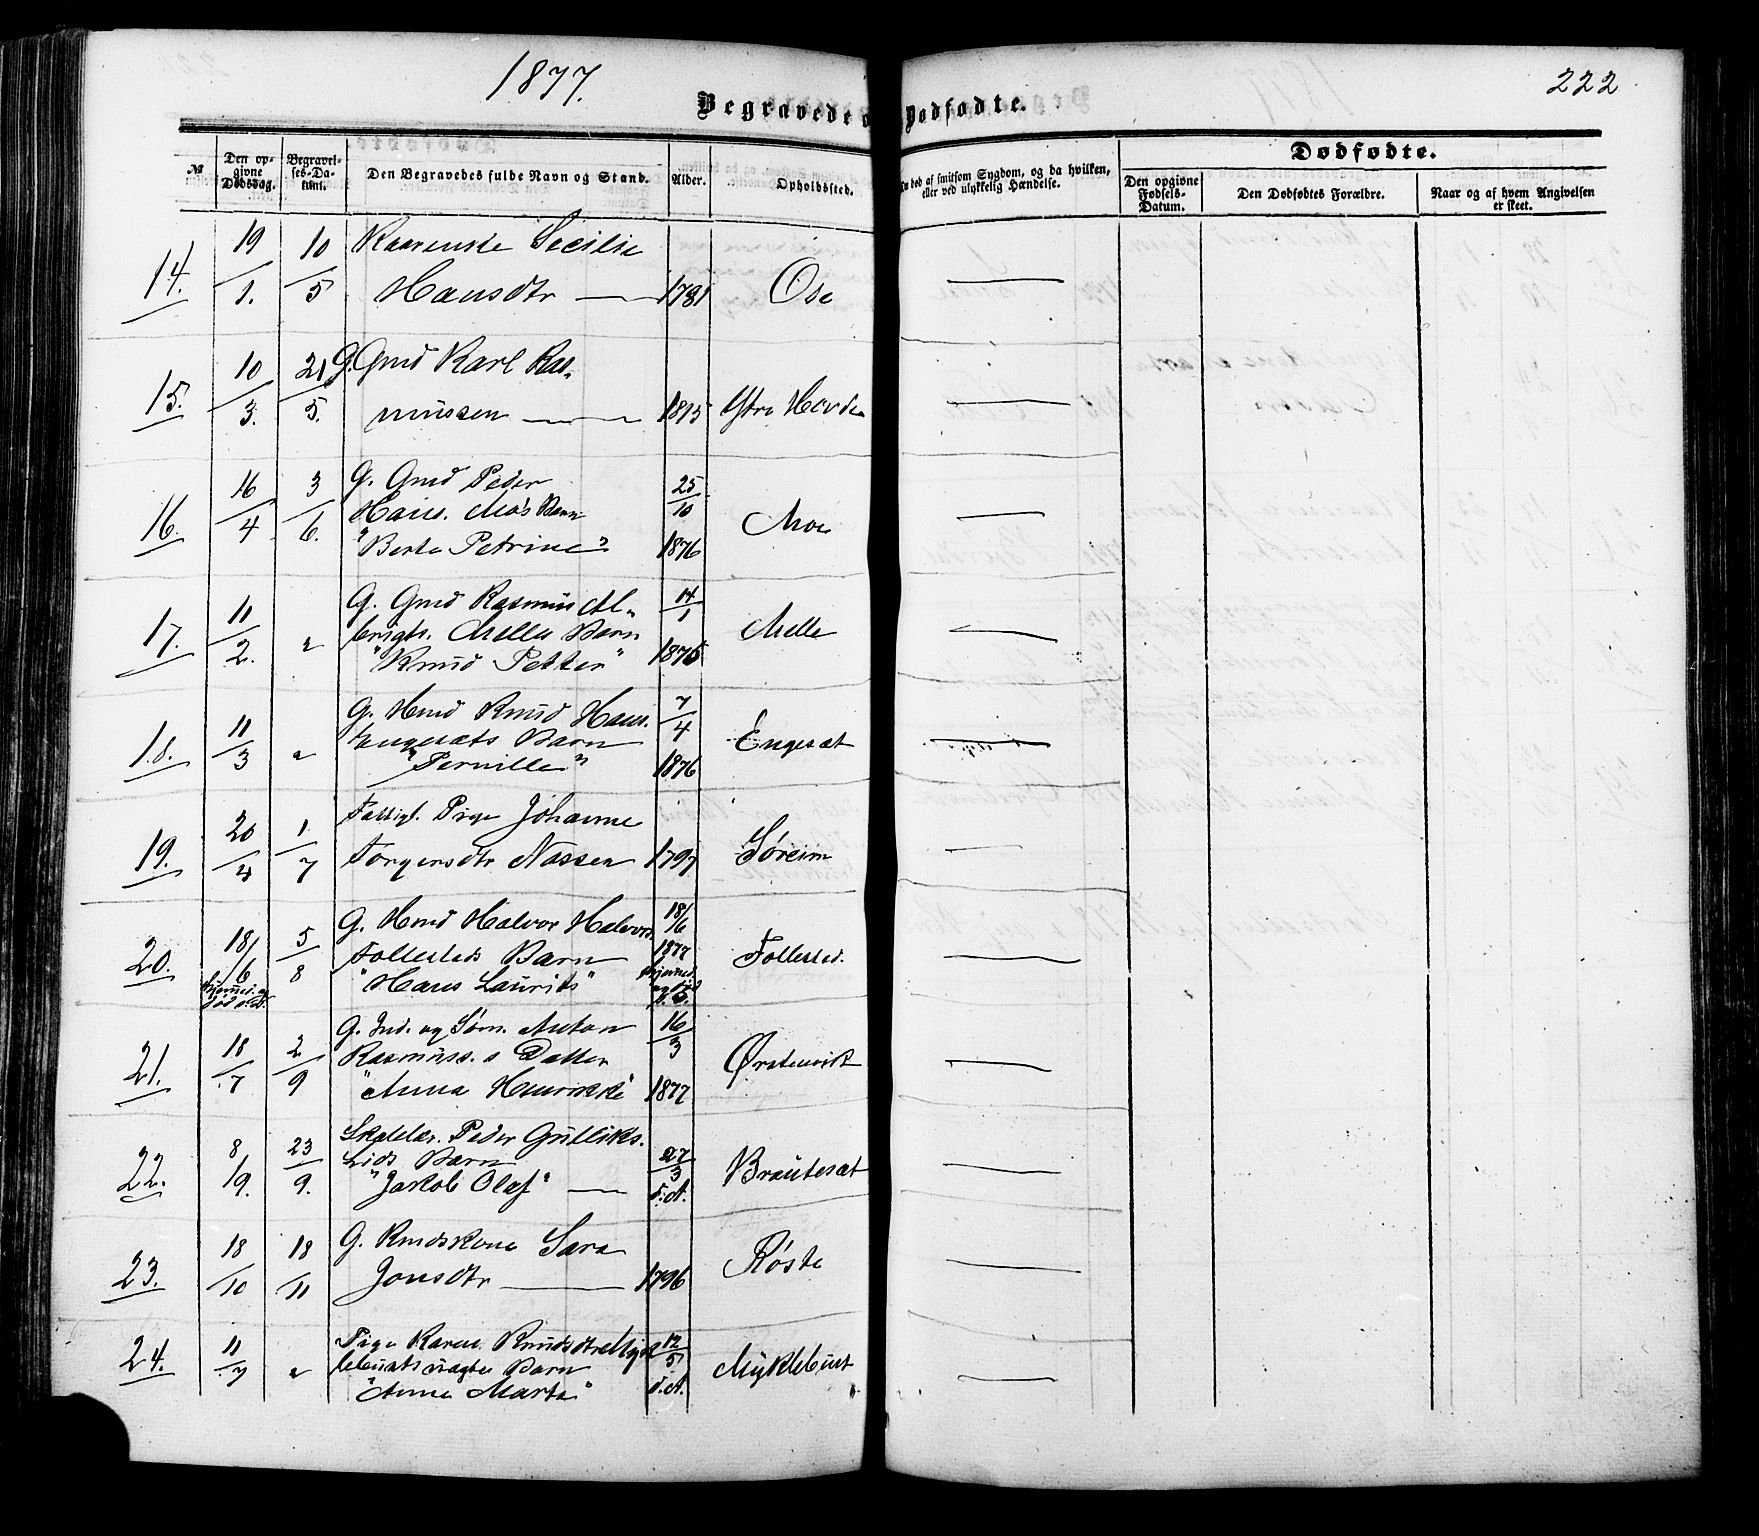 1877.
222
Begravede Dødfødte.
№
Den opgivne Dødsdag.
Begravelses-Datum.
Den Begravedes fulde Navn og Stand.
Alder.
Opholdssted.
ded af smitsom Sygdom, og da hvilken, eller ved ulykkelig Hændelse.
Dødfødte.
Den opgivne Fødsels-Datum.
Den Dødfødtes Forældre.
Naar og af hvem Angivelsen er skeet.
14. 19/1. 10/5 Secilie
Hansdtr — 1781 Ose —
15. 10/3. 21/5. G. Gmd Karl Ras-
mussen — 1815 Ytre Hovde —
16. 16/4 3/6. G. Gmd Peder 25/10
Hans. Mo's Barn Moe —
"Berte Petrine" 1876
17. 11/2. " G. Gmd Rasmus Al- 14/1
brigts. Melle Barn Melle —
"Knud Petter" 1875
18. 11/3 " G. Hmd Knud Hans. 7/4
Engesæts Barn Engesæt —
"Pernille" 1876
19. 20/4 1./7 Fattigl. Pige Johanne
Torgersdtr Nassen 1797 Søreim —
20. 18/6 5/8 G. Hmd Halvor Halvors. 18/6
Follesteds Barn 1877 Follested. —
"Hans Laurits"
21. 18/7 2/9 G. Ind. og Sorn. Anton 16/3
Rasmuss.s Datter Ørstenvik —
"Anna Henrikke" 1877
22. 8/9. 23/9. Skolelær. Peder Gulliks. 27/3
Lids Barn Brautesæt —
"Jakob Olaf" — d.A.
23. 18/10 18/11 G. Kmdskone Sara
Jonsdtr — 1796 Røste —
24. 11/7 " Pige Karen Knudsdtr Myk- 12/5
lebusts uægte Barn Myklebust —
"Anne Marte" d.A.